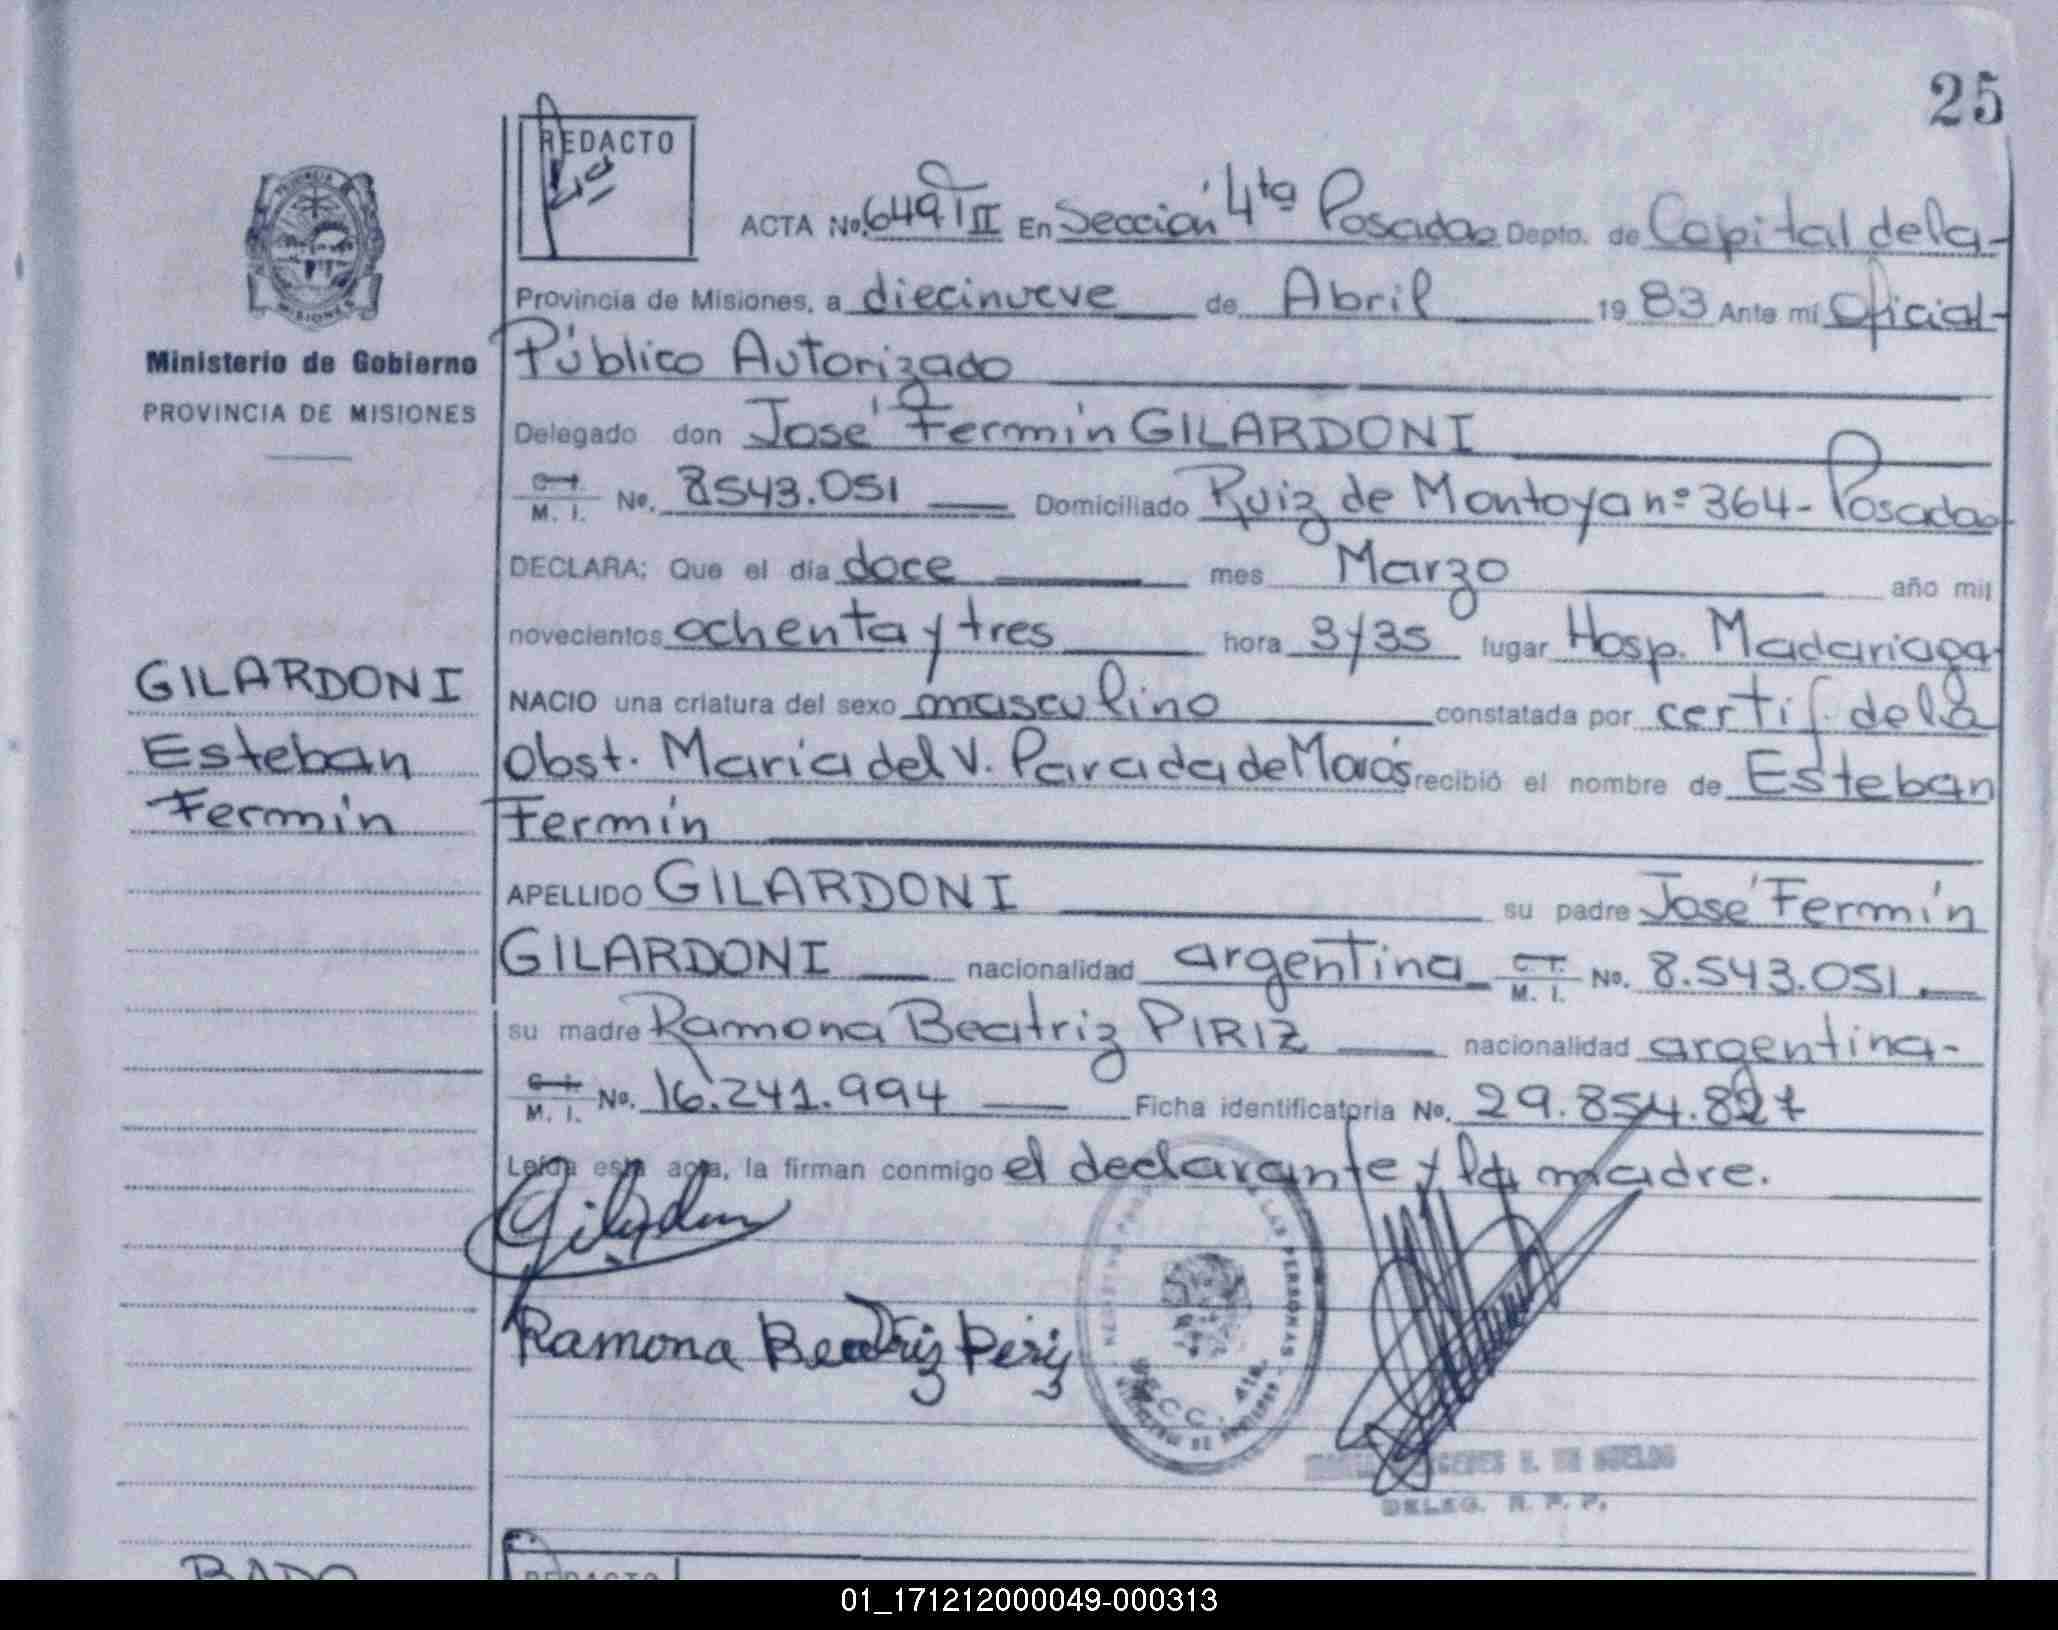 25
REDACTO
4ª
ACTA No. 649 T II En Sección 4ta Posadas Depto. de Capital de la-
Provincia de Misiones, a diecinueve de Abril 19 83 Ante mí Oficial-
Público Autorizado
Delegado don José Fermín GILARDONI
C. I. M. I. No. 8543.051 Domiciliado Ruiz de Montoya nº 364- Posadas
DECLARA: Que el día doce mes Marzo año mil
novecientos ochenta y tres hora 3y35 lugar Hosp. Madariaga
NACIO una criatura del sexo masculino constatada por certif. de la
Obst. María del V. Parada de recibió el nombre de Esteban
Fermín
APELLIDO GILARDONI su padre José Fermín
GILARDONI nacionalidad argentina C. I. M. I. No. 8.543.051.
su madre Ramona Beatriz PIRIZ nacionalidad argentina-
C. I. M. I. No. 16.241.994 Ficha identificatoria No. 29.854.827
Leída esta acta, la firman conmigo el declarante y la madre.
Ramona Beatriz Periz
REGISTRO LAS PERSONAS
C. C. 4ta.
MINISTERIO DE GOBIERNO
DELEG. R. P. P.
PROVINCIA D
MISIONES
Ministerio de Gobierno
PROVINCIA DE MISIONES
GILARDONI
Esteban
Fermín
BADO
REDACTO
01_171212000049-000313